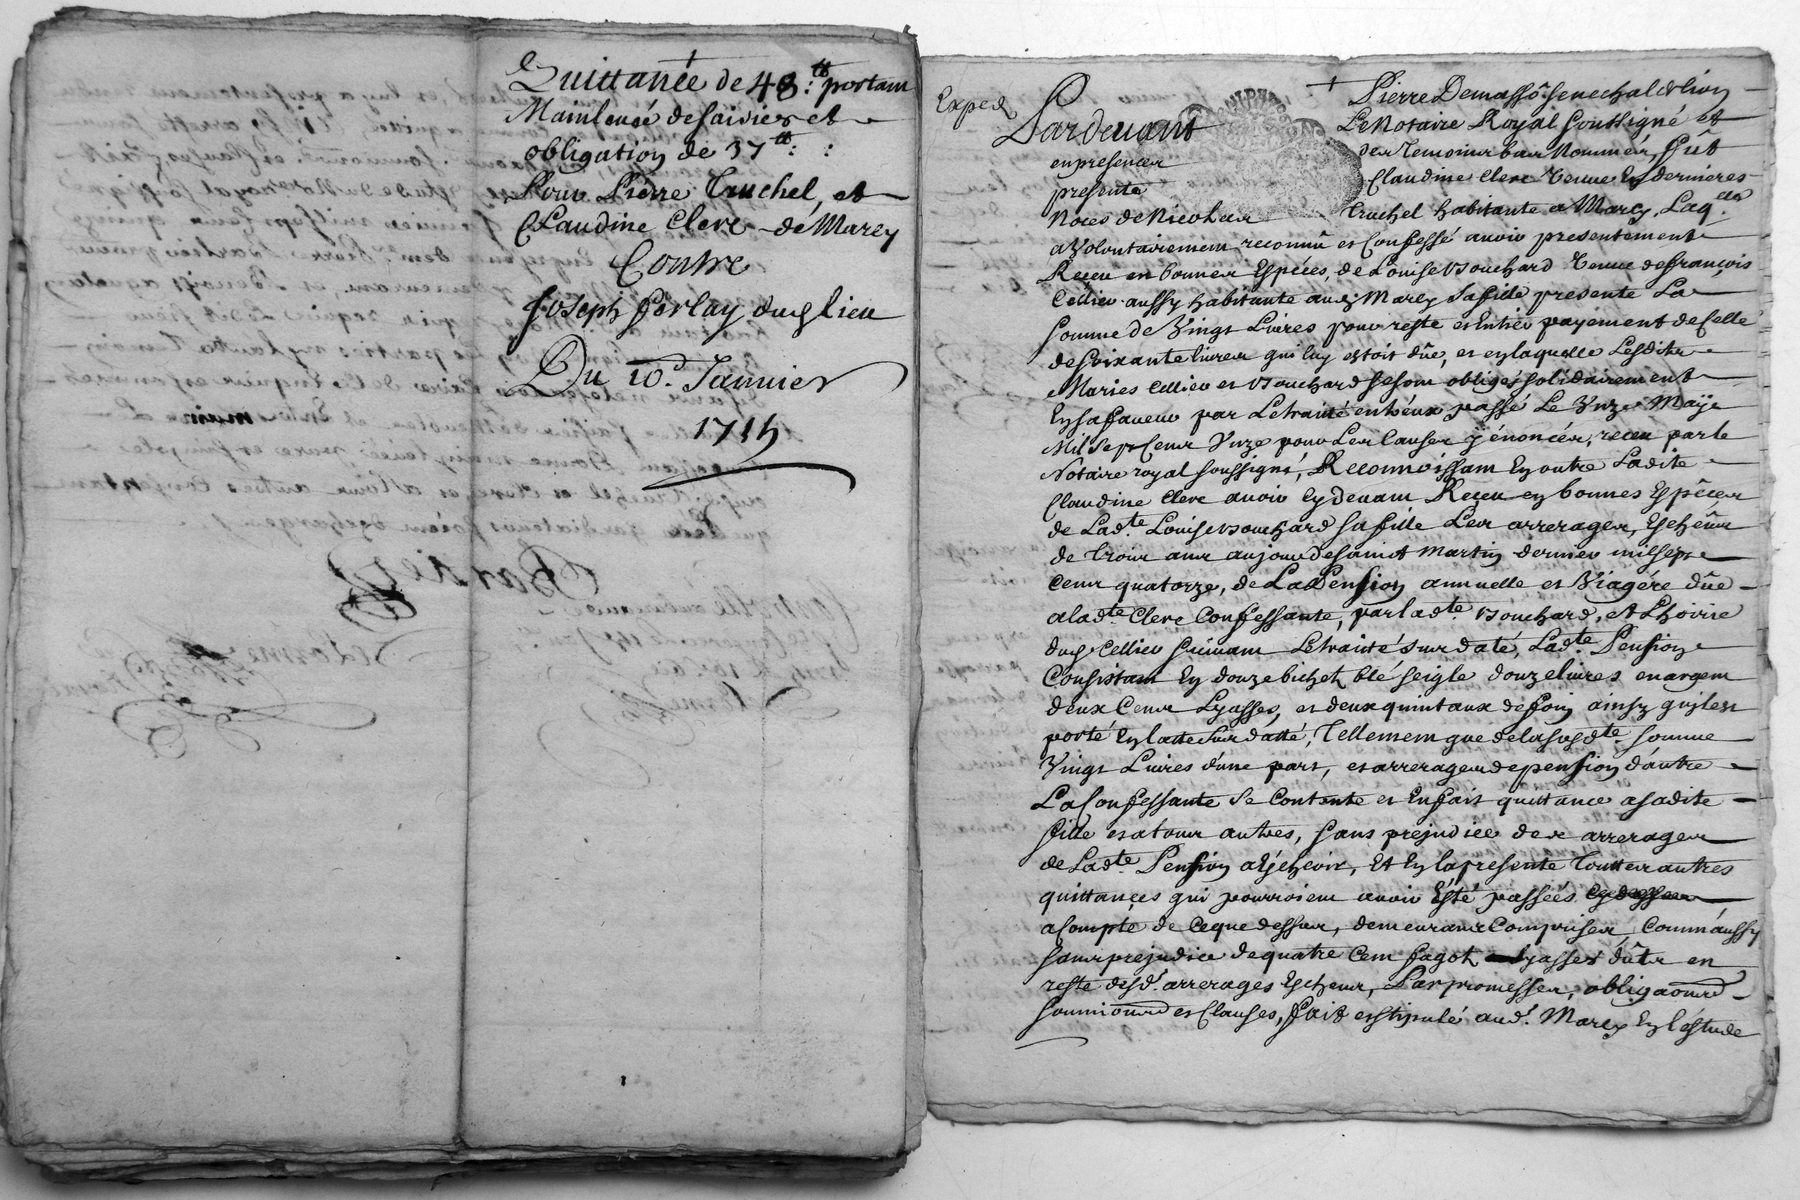 Quittance de 48 :tt portant
Mainlevée de saisies et
obligation de 37tt : :
Pour Pierre Truchel, et
Claudine Clerc de Marcy
Contre
Joseph ferlay dugl lieu
Du 10e. Janvier
1715
Exped
Pardevant Le Notaire Royal soussigné et
en presence des temoins bas Nommés, fût
presente Claudine Clerc veuve En dernieres
Noces de Nicolas Truchel habitante a Marcy, Laqlle
a volontairement reconnû et Confessé avoir presentement
Reçeu en bonnes Especes, de Louise Bouchard veuve de françois
Cellier aussy habitante audt Marcy sa fille presente La
somme de Vingt Livres pour reste et Entier payement de Celle
de soixante livres qui luy estoit dûe, et en laquelle Lesdits
Maries Cellier et Bouchard se sont obligés solidairement
En sa faveur par Le traité entr'eux passé Le Unze Maÿ
Mil Sept Cent Unze pour Les Causes y énoncées, receu par le
Notaire royal soussigné, Reconnoissant En outre Ladite
Claudine Clerc avoir Cy devant Reçeu en bonnes Espêces
de Ladte Louise Bouchard sa fille Les arrerages, Escheûs
de trois ans au jour de saint Martin dernier mil sept
Cent quatorze, de La Pension annuelle et Viagére dûe
a ladte Clerc Confessante, par ladte Bouchard, et L'hoirie
dud Cellier suivant Le traité sus daté, Ladte Pension
Consistant En douze bichets blé seigle douze livres en argent
deux Cent Lyasses, et deux quintaux de foin ainsy qu'il est
porté En l'acte sus datté, Tellement que de la susdte somme
Vingt Livres d'une part, et arrerages de pension d'autre
La Confessante se Contente et En fait quittance a sadite
fille et a tous autres, sans prejudice des arrerages
de Ladte Pension a Escheoir, Et En la presente Touttes autres
quittances qui pourroient avoir Esté passées
a Compte de Ce que dessus, demeurant Comprises, Comm'aussy
sans prejudice de quatre Cent fagots Lyasses dûts en
reste desd. arrerages Escheus, Par promesses, obligaons
soumions et Clauses, fait et stipulé aud. Marcy En L'éstude